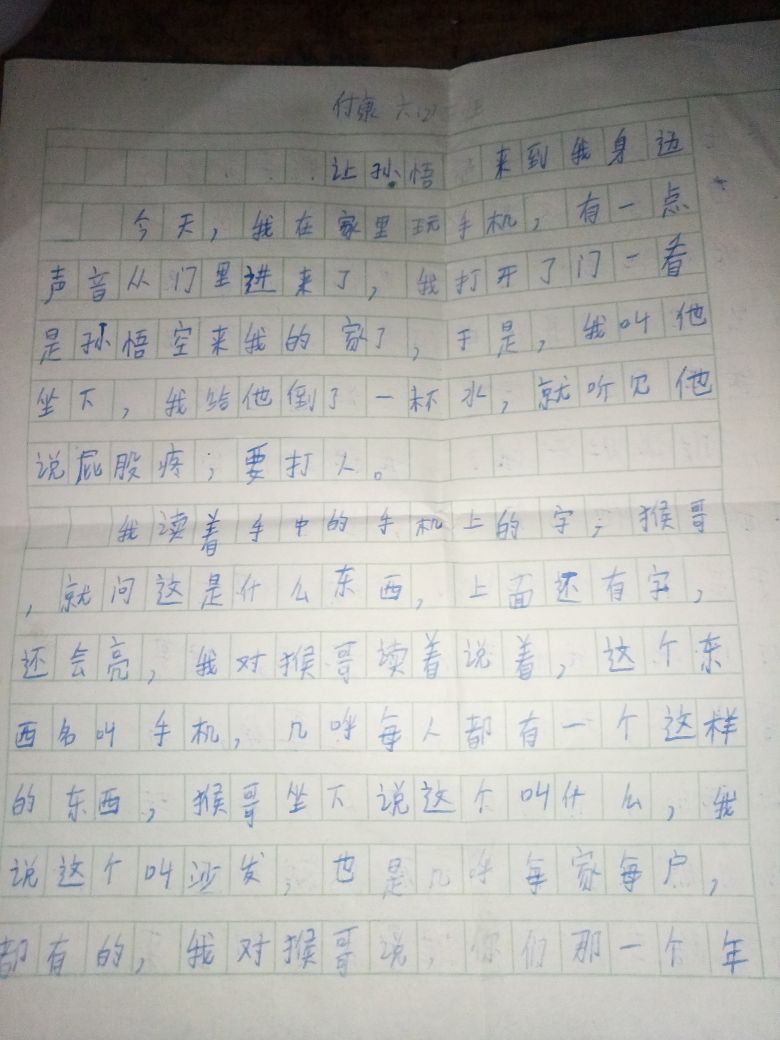 付康 六
让孙悟 来到我身边
今天，我在家里玩手机，有一点
声音从门里进来了，我打开了门一看
是孙悟空来我的家了，于是，我叫他
坐下，我给他倒了一杯水，就听见他
说屁股疼，要打人。
我读着手中的手机上的字，猴哥
，就问这是什么东西，上面还有字，
还会亮，我对猴哥读着说着，这个东
西名叫手机，几呼每人都有一个这样
的东西，猴哥坐下说这个叫什么，我
说这个叫沙发，也是几呼每家每户，
都有的，我对猴哥说，你们那一个年